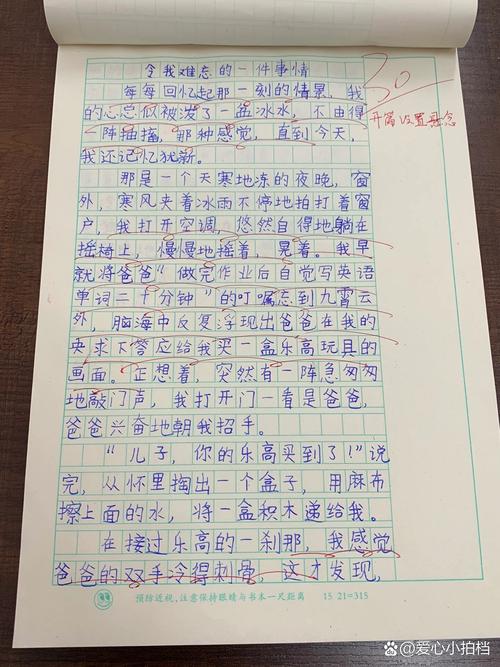 令我难忘的一件事情
30
每每回忆起那一刻的情景，我
的心总似被泼了一盆冰水，不由得
开篇设置悬念
一阵抽搐，那种感觉，直到今天，
我还记忆犹新。
那是一个天寒地冻的夜晚，窗
外，寒风夹着冰雨不停地拍打着窗
户，我打开空调，悠然自得地躺在
摇椅上，慢慢地摇着，晃着。我早
就将爸爸“做完作业后自觉写英语
单词二十分钟”的叮嘱忘到九霄云
外，脑海中反复浮现出爸爸在我的
央求下答应给我买一盒乐高玩具的
画面。正想着，突然有一阵急匆匆
地敲门声，我打开门一看是爸爸，
爸爸兴奋地朝我招手。
“儿子，你的乐高买到了！”说
完，从怀里掏出一个盒子，用麻布
擦上面的水，将一盒积木递给我。
在接过乐高的一刹那，我感觉
爸爸的双手冷得刺骨，这才发现，
预防近视，注意保持眼睛与书本一尺距离 15 21=315
@爱心小拍档